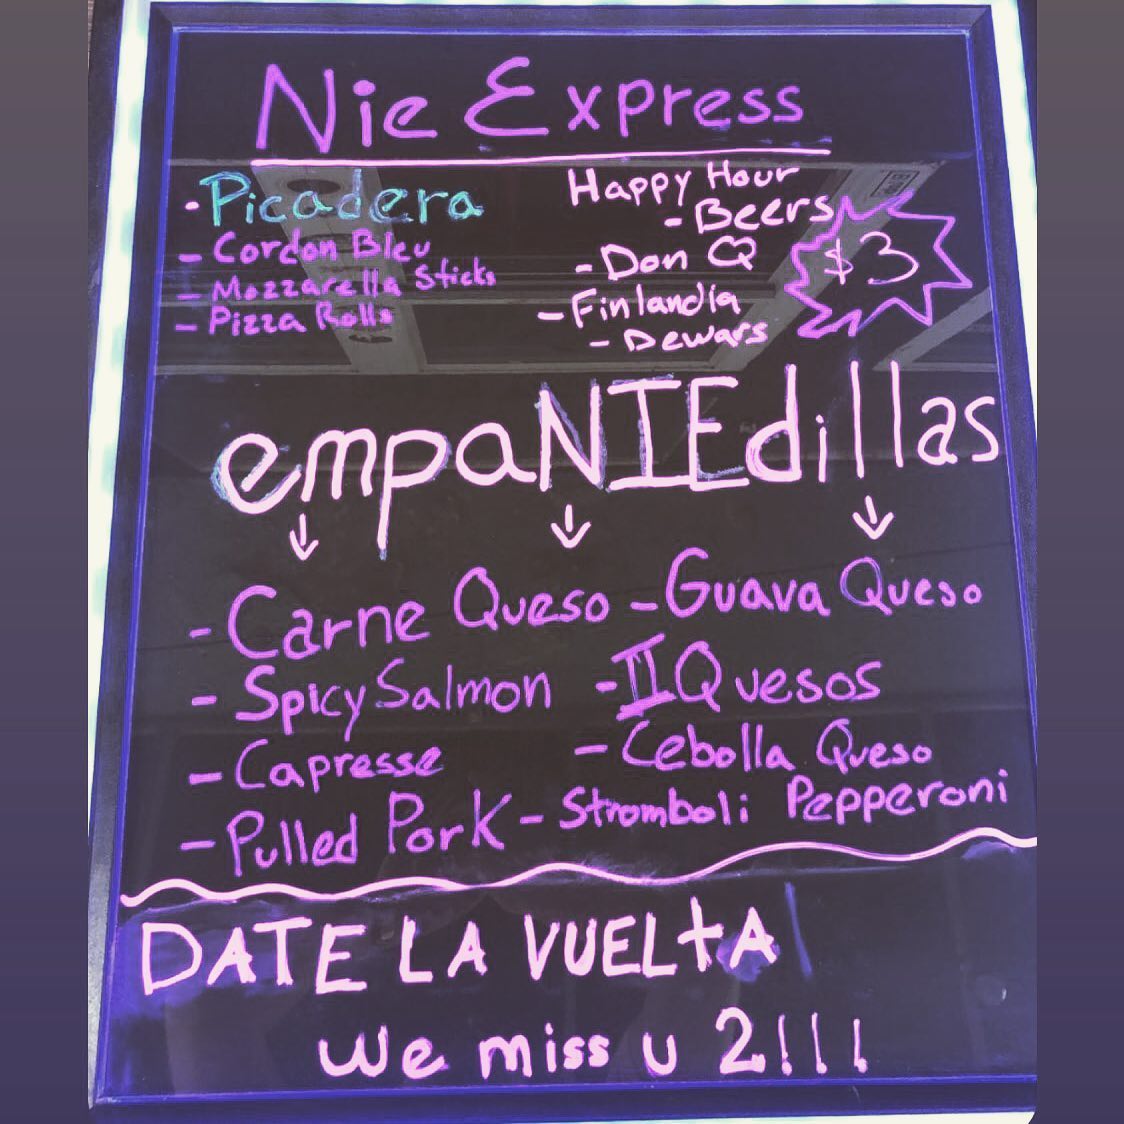 Nie Express
- Picadera
- Cordon Bleu
- Mozzarella Sticks
- Pizza Rolls
Happy Hour
- Beers
- Don Q
- Finlandia
- Dewars
$3
empaNIEdillas
- Carne Queso
- Spicy Salmon
- Capresse
- Pulled Pork
- Guava Queso
- II Quesos
- Cebolla Queso
- Stromboli Pepperoni
DATE LA VUELTA
We miss u 2!!!